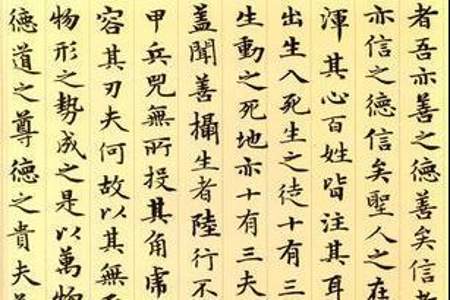 者吾亦善之德善矣信者
亦信之德信矣聖人之在
渾其心百姓皆注其耳
出生入死生之徒十有三
生動之死地亦十有三夫
蓋聞善攝生者陸行不
甲兵兕無所投其角虎
容其刃夫何故以其無
物形之勢成之是以萬物
德道之尊德之貴夫